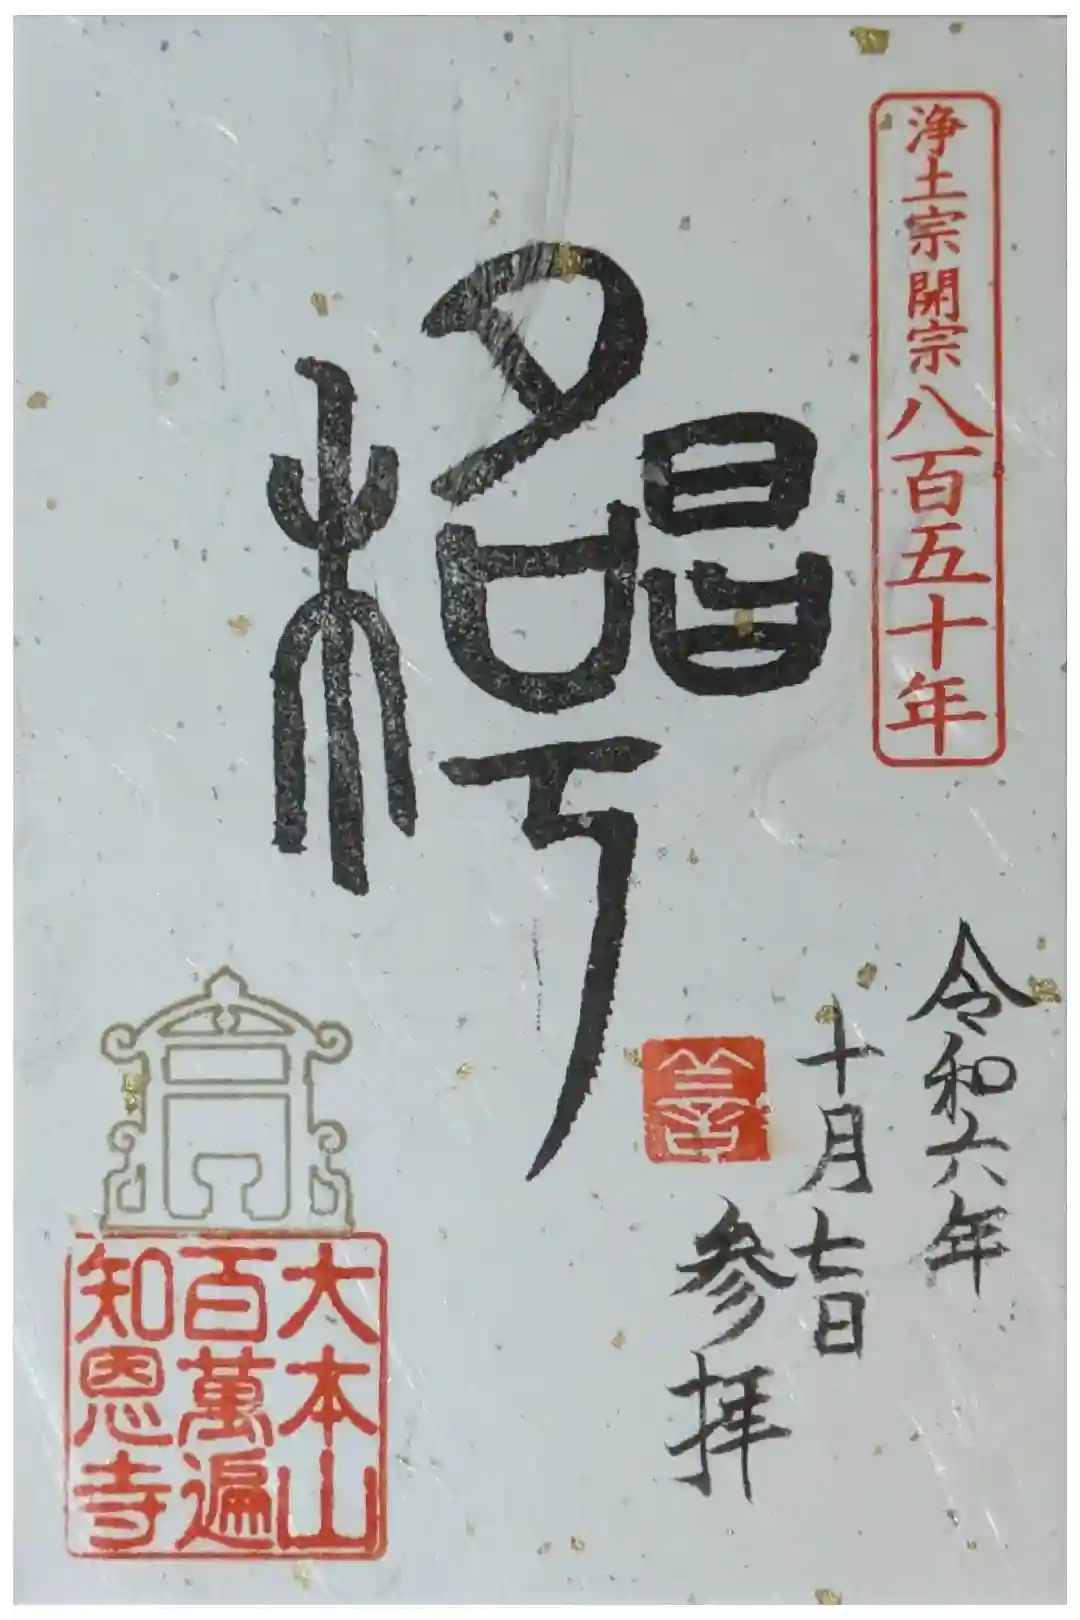 浄土宗開宗八百五十年
名号唱和
令和六年
十月七日
参拝
大本山
百萬遍
知恩寺